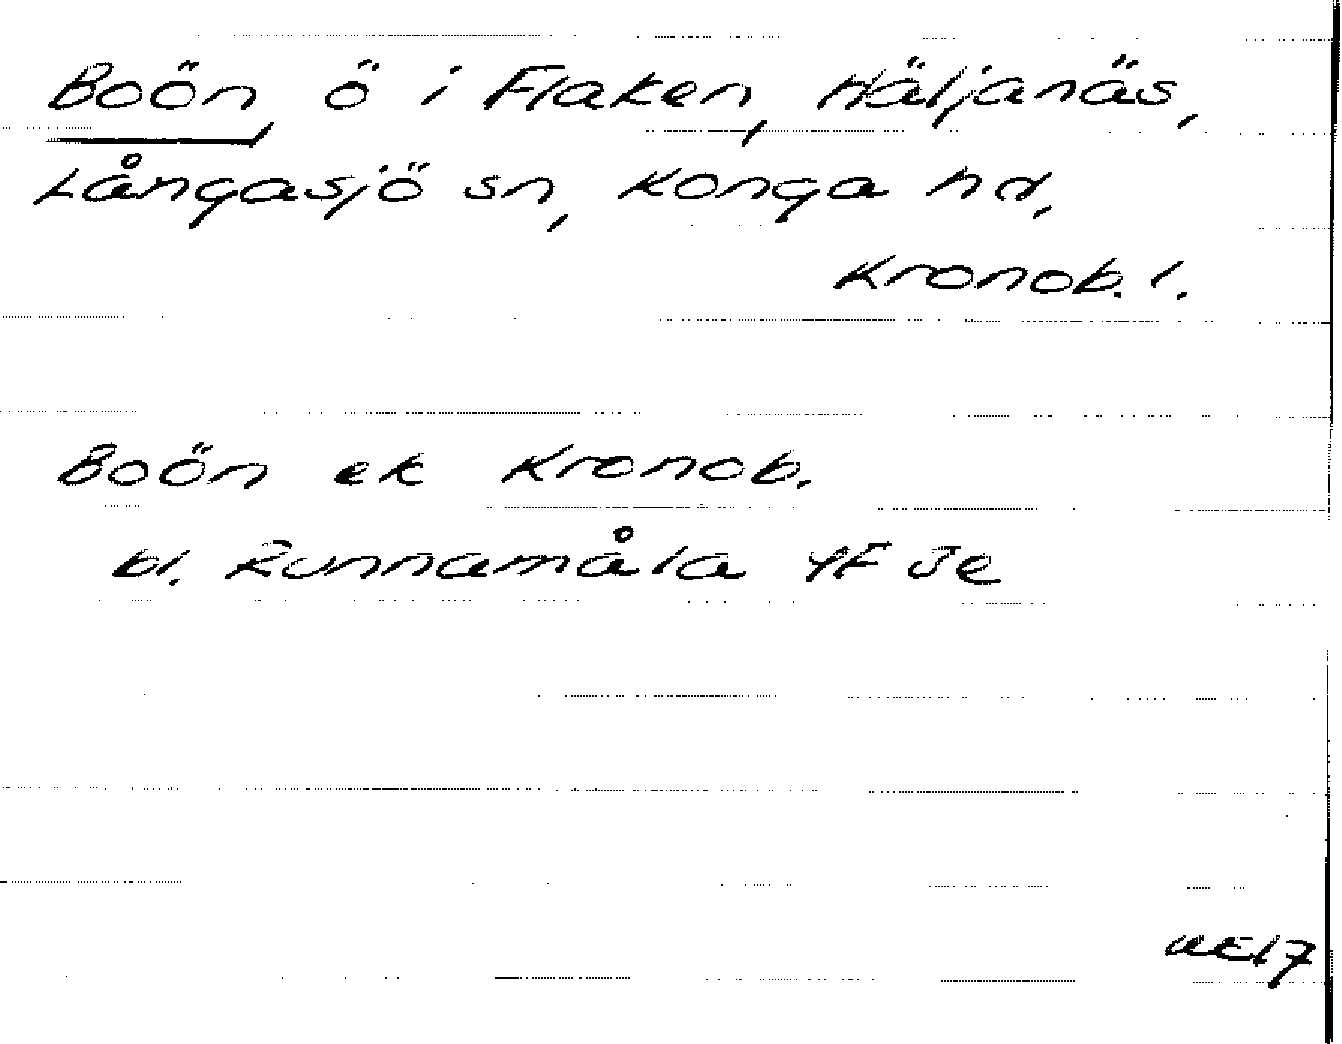 Boön, ö i Flaken, Häljanäs,
Långasjö sn, Konga hd,
Kronob. l.
Boön ek Kronob.
bl. Runnamåla 4F Je